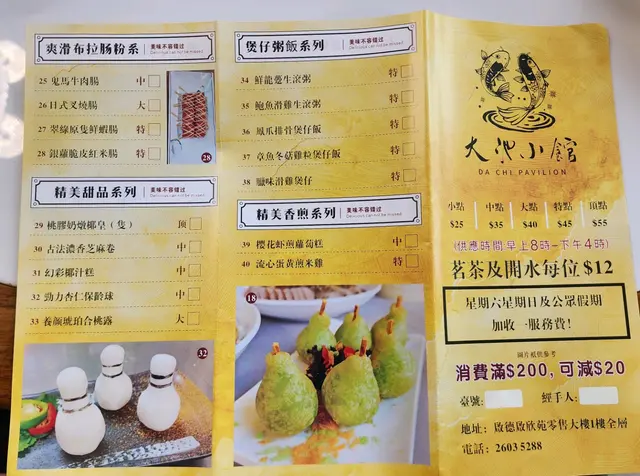 爽滑布拉肠粉系
美味不容错过
25 鬼馬牛肉腸 中
26 日式叉燒腸 大
27 翠綠原隻鮮蝦腸 特
28 銀蘿脆皮紅米腸 特
28
精美甜品系列
美味不容错过
29 桃膠奶燉椰皇（隻） 顶
30 古法濃香芝麻卷 中
31 幻彩椰汁糕 中
32 勁力杏仁保齡球 中
33 養顏琥珀合桃露 大
32
煲仔粥飯系列
美味不容错过
34 鮮龍躉生滾粥 特
35 鮑魚滑雞生滾粥 特
36 鳳爪排骨煲仔飯 特
37 章魚冬菇雞粒煲仔飯 特
38 臘味滑雞煲仔 特
精美香煎系列
美味不容错过
39 櫻花虾煎蘿蔔糕 中
40 流心蛋黃煎米雞 特
18
大池小館
DA CHI PAVILION
小點 中點 大點 特點 頂點
$25 $35 $40 $45 $55
(供應時間 早上8時-下午4時)
茗茶及開水每位 $12
星期六星期日及公眾假期
加收一服務費!
圖片紙供參考
消費滿$200, 可減$20
臺號: 經手人:
地址: 啟德啟欣苑零售大樓1樓全層
電話: 2603 5288